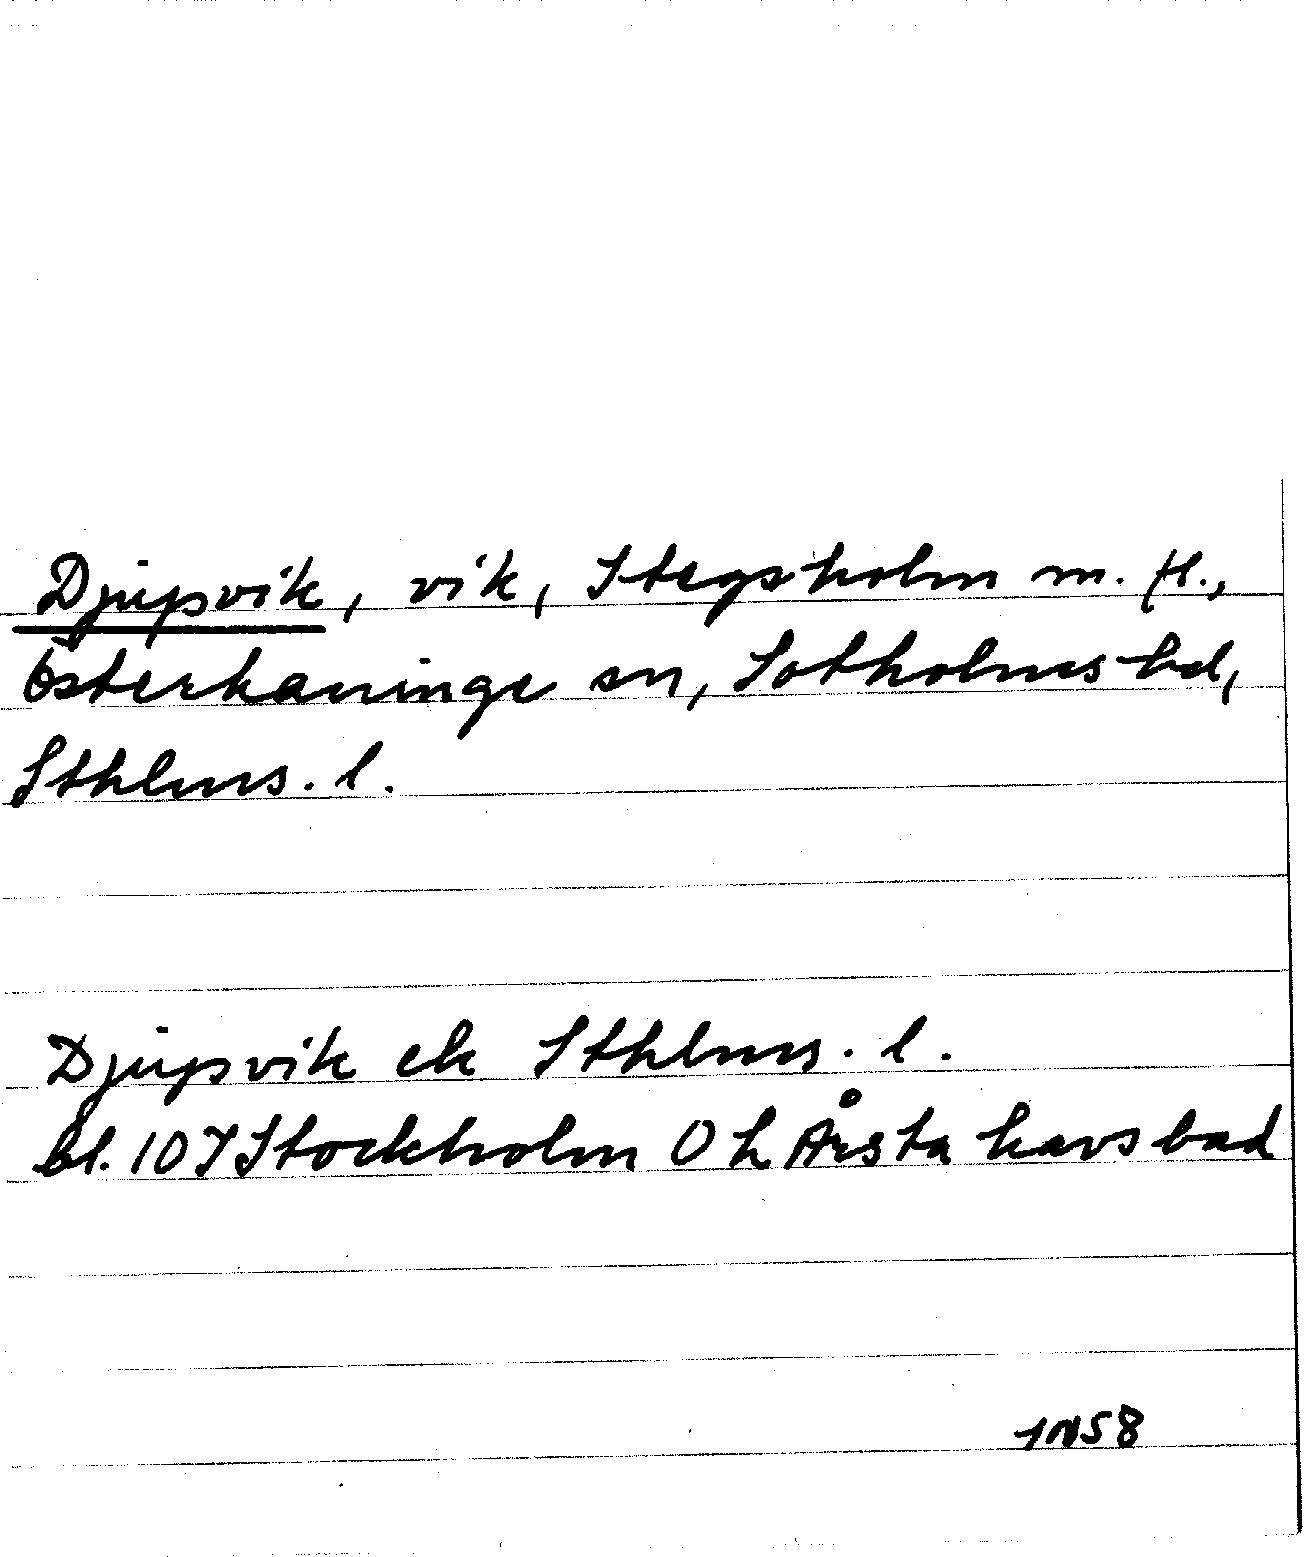 Djupvik, vik, Stegsholm m. fl.,
Österhaninge sn, Sotholms hd,
Sthlms. l.
Djupvik ek Sthlms. l.
bl. 10I Stockholm O h Årsta havsbad